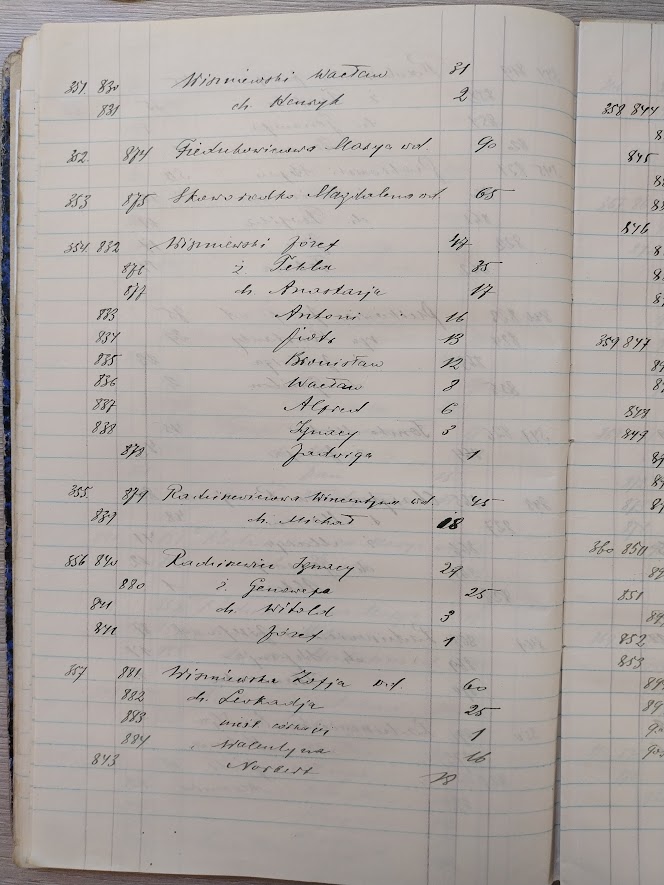 351. 830 Wiśniewski Wacław 31
831 ch. Henryk 2
352. 874 Fiedukowiczowa Marya wd. 90
353 875 Skoworodko Magdalena wd. 65
354. 832 Wiśniewski Józef 47
876 ż. Tekla 35
877 ch. Anastazja 17
833 Antoni 16
834 Piotr 13
835 Bronisław 12
836 Wacław 8
837 Alfred 6
838 Ignacy 3
878 Jadwiga 1
355. 879 Radziewiczowa Wincentyna wd. 45
839 ch. Michał 18
356 840 Radziewicz Ignacy 29
880 ż. Genowefa 25
841 ch. Witold 3
Józef 1
357 881 Wiśniewska Zofja wd. 60
882 ch. Leokadja 25
883 1
884 Walentyna 16
843 Norbert 18
358 844
845
846
359 847
848
849
360 850
851
852
853